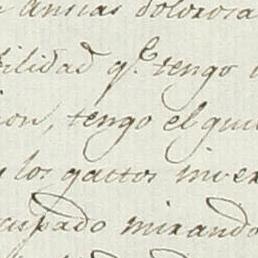 ansias dolorosa
ilidad q.e tengo
ion, tengo el gu
los gactos inver
cupado mirando